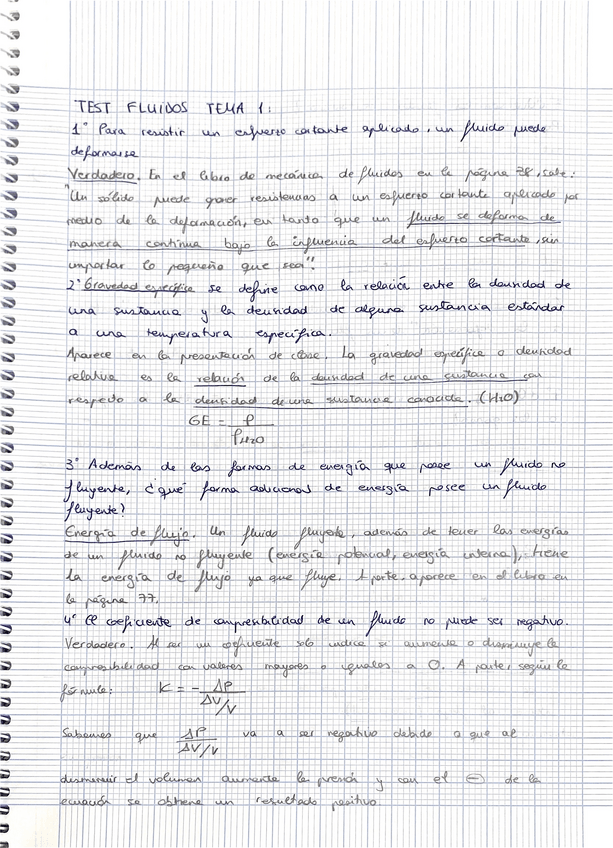 TEST FLUIDOS TEMA 1:
1º Para resistir un esfuerzo cortante aplicado, un fluido puede
deformarse
Verdadero. En el libro de mecánica de fluidos en la página 38, sale:
"Un sólido puede poner resistencias a un esfuerzo cortante aplicado por
medio de la deformación, en tanto que un fluido se deforma de
manera continua bajo la influencia del esfuerzo cortante, sin
importar lo pequeño que sea".
2º Gravedad específica se define como la relación entre la densidad de
una sustancia y la densidad de alguna sustancia estándar
a una temperatura específica.
Aparece en la presentación de clase. La gravedad específica o densidad
relativa es la relación de la densidad de una sustancia con
respecto a la densidad de una sustancia conocida. (H2O)
GE = ρ / ρH2O
3º Además de las formas de energía que posee un fluido no
fluyente, ¿qué forma adicional de energía posee un fluido
fluyente?
Energía de flujo. Un fluido fluyente, además de tener las energías
de un fluido no fluyente (energía potencial, energía interna), tiene
la energía de flujo ya que fluye. A parte, aparece en el libro en
la página 77.
4º El coeficiente de compresibilidad de un fluido no puede ser negativo.
Verdadero. Al ser un coeficiente solo indica si aumenta o disminuye la
compresibilidad con valores mayores o iguales a 0. A parte, según la
fórmula: K = - ΔP / ΔV/V
Sabemos que ΔP / ΔV/V va a ser negativo debido a que al
disminuir el volumen aumenta la presión y con el ⊖ de la
ecuación se obtiene un resultado positivo.